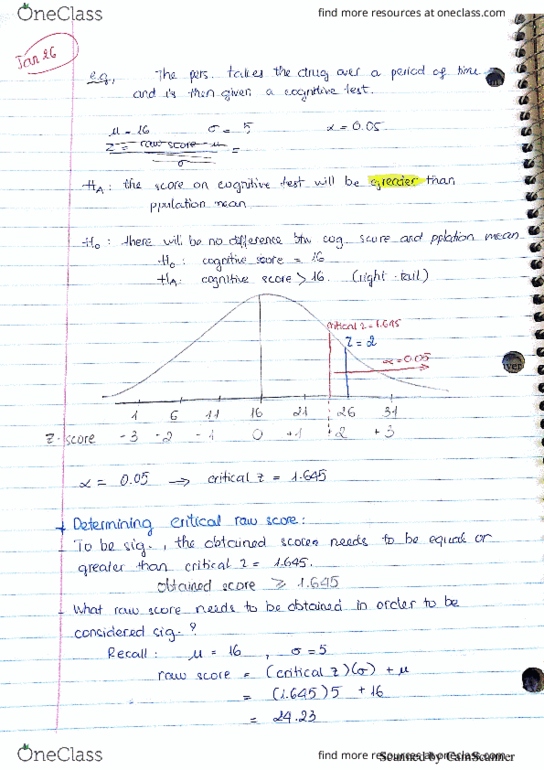 OneClass find more resources at oneclass.com
Jan 26
e.g., The pers. takes the drug over a period of time
and is then given a cognitive test.
μ = 16 σ = 5 α = 0.05
z = raw score - μ =
σ
HA: the score on cognitive test will be greater than
ppulation mean
Ho: there will be no difference btw cog. score and pplation mean
Ho: cognitive score = 16
HA: cognitive score > 16. (right tail)
critical z = 1.645
z = 2
α = 0.05
1 6 11 16 21 26 31
z-score -3 -2 -1 0 +1 +2 +3
α = 0.05 → critical z = 1.645
Determining critical raw score:
- To be sig., the obtained scores needs to be equal or
greater than critical z = 1.645.
obtained score ≥ 1.645
- What raw score needs to be obtained in order to be
considered sig.?
Recall: μ = 16, σ = 5
raw score = (critical z)(σ) + μ
= (1.645)5 + 16
= 24.23
OneClass find more resources at oneclass.com
Scanned by CamScanner